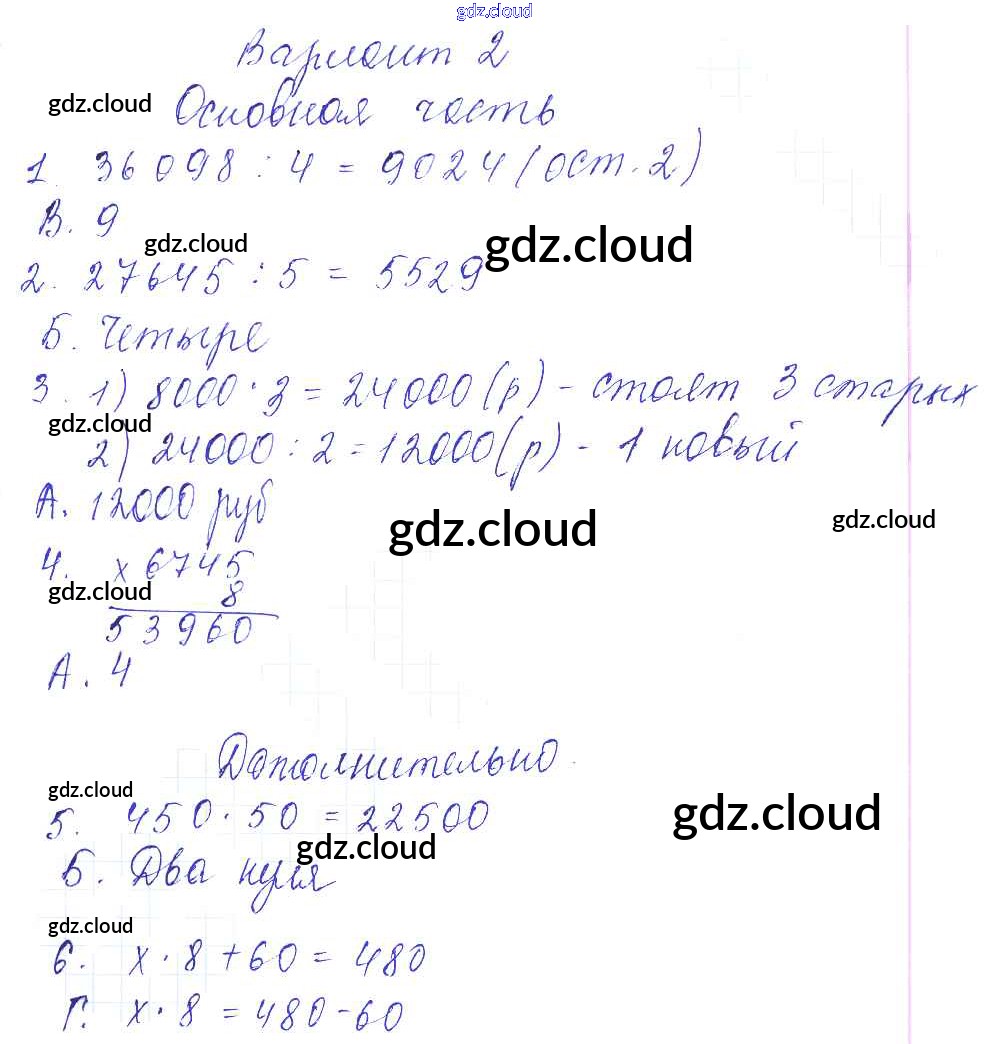 gdz.cloud
Вариант 2
gdz.cloud
Основная часть
1. 36098 : 4 = 9024 (ост. 2)
В. 9
gdz.cloud
gdz.cloud
2. 27645 : 5 = 5529
Б. Четыре
3. 1) 8000 · 3 = 24000 (р) - стоят 3 старых
gdz.cloud
2) 24000 : 2 = 12000 (р) - 1 новый
А. 12000 руб
gdz.cloud
gdz.cloud
4. х 6745
gdz.cloud
8
53960
А. 4
Дополнительно
gdz.cloud
5. 450 · 50 = 22500
gdz.cloud
gdz.cloud
Б. Два нуля
gdz.cloud
6. х · 8 + 60 = 480
Г. х · 8 = 480 - 60